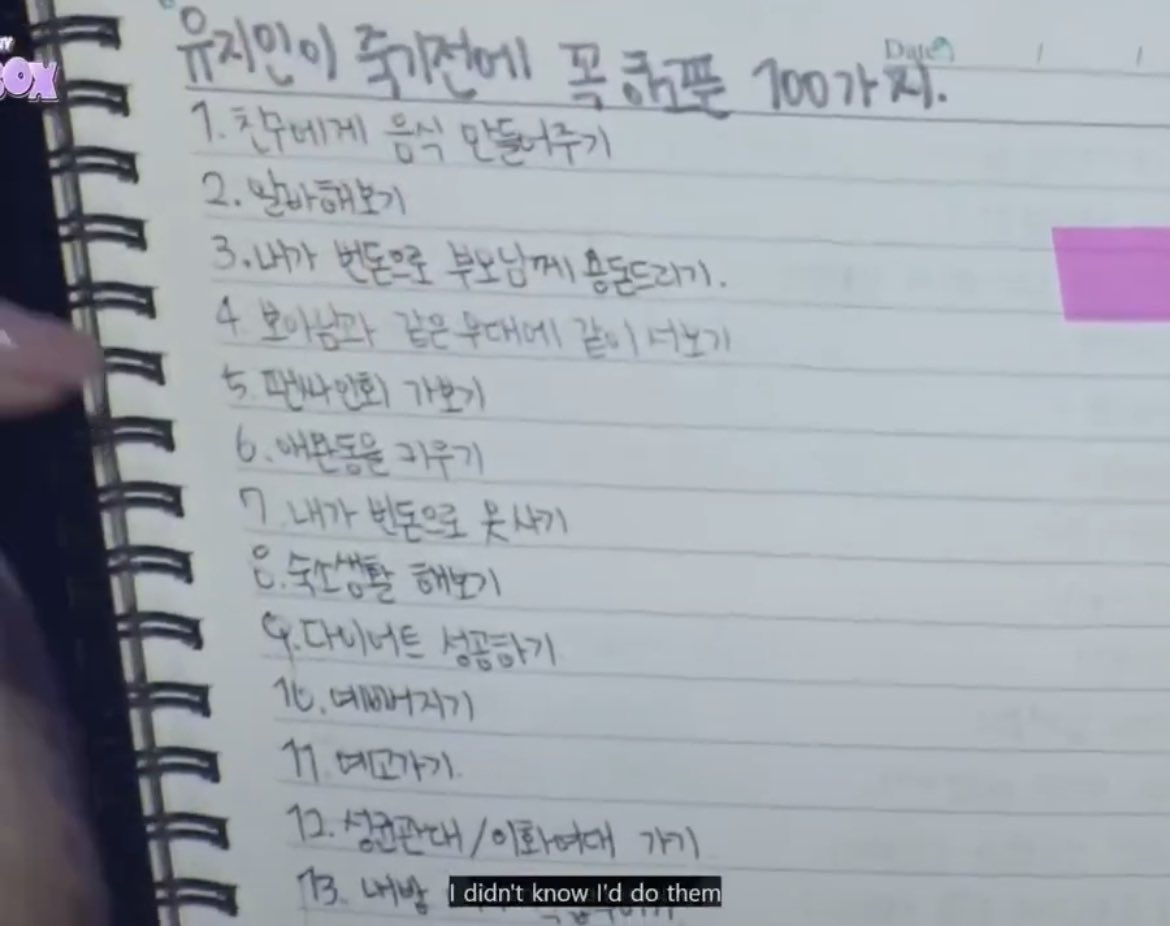 유지민이 죽기전에 꼭 하고픈 100가지.
Date
1. 친구에게 음식 만들어주기
2. 알바해보기
3. 내가 번돈으로 부모님께 용돈드리기.
4 보아님과 같은무대에 같이 서보기
5. 팬싸인회 가보기
6. 애완동물 키우기
7. 내가 번돈으로 옷사기
8. 숙소생활 해보기
9. 다이어트 성공하기
10. 예뻐지기
11. 여고가기.
12. 성균관대/이화여대 가기
13. 내방
I didn't know I'd do them
OX